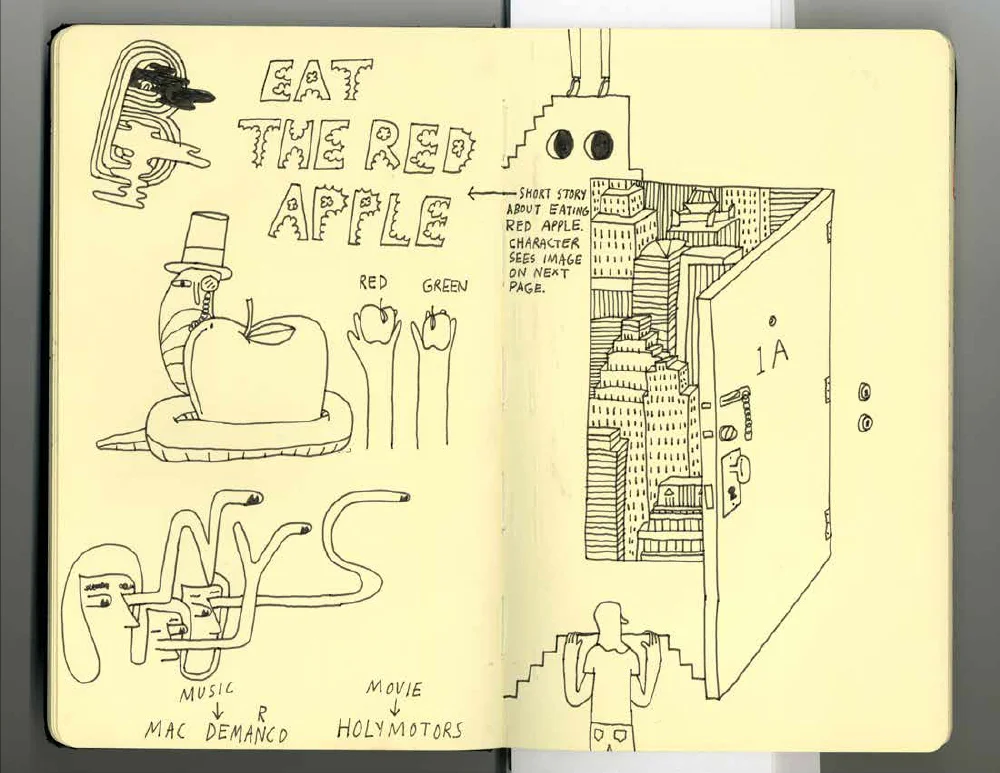 EAT
THE RED
APPLE
RED
GREEN
MUSIC
R
MAC DEMANCO
MOVIE
HOLYMOTORS
SHORT STORY
ABOUT EATING
RED APPLE.
CHARACTER
SEES IMAGE
ON NEXT
PAGE.
1A